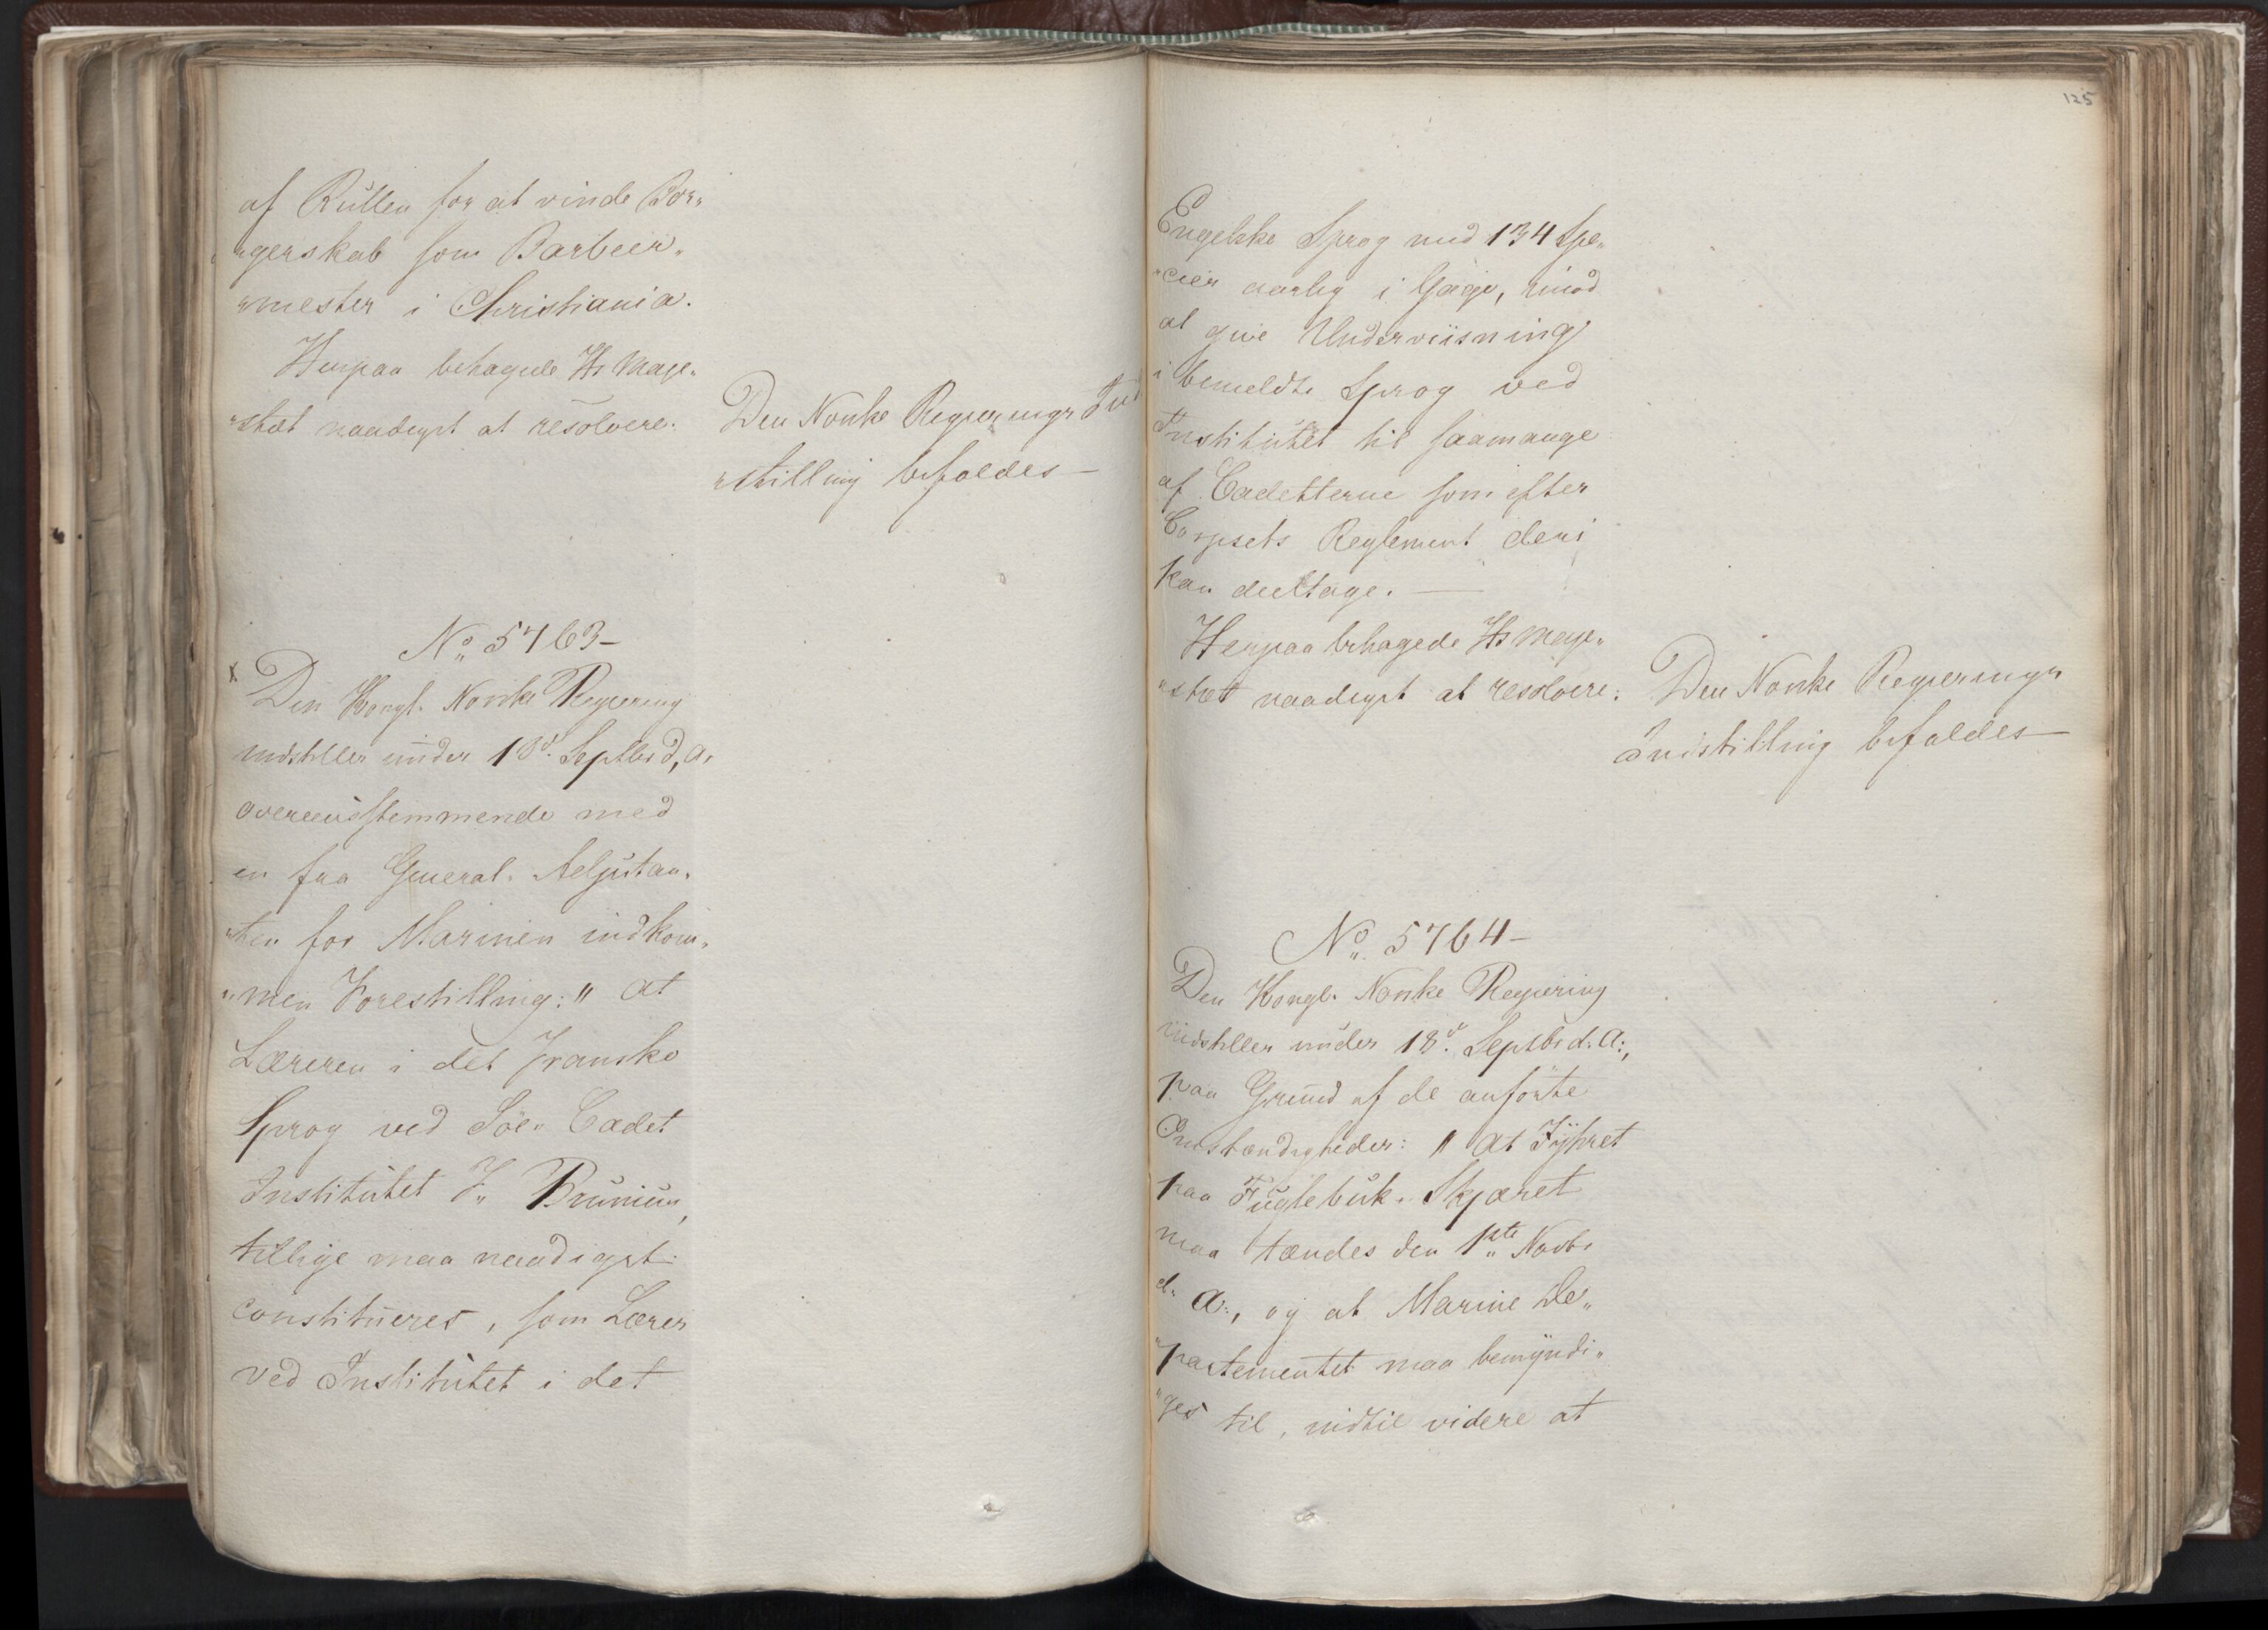 af Rullen for at vinde Bor„
„gerskab som Barbeer„
„mester i Christiania.
Herpaa behagede Hs Maje„
„stæt naadigst at resolvere:
Den Norske Regjerings Ind
„stilling bifaldes—
No 5763–
x
Den Kongl. Norske Regiering
indstiller under 18d. Septbr d, a,
overeensstemmende med
en fra General„ Adjutan„
„ten for Marinen indkom„
„men Forestilling: „ at
Læreren i det franske
Sprog ved Söe„ Cadet
Institutet J„ Brunius,
tillige maa naadigst
constitueres, som Lærer
ved Institutet i det
125
Engelske Sprog med 134 Spe„
„cier aarlig i Gage, imod
at give Underviisning
i bemeldte Sprog ved
Institutet til saamange
af Cadetterne som efter
Corpsets Reglement deri
kan deeltage. —
Herpaa behagede Hs Maje„
„stæt naadigst at resolvere:
Den Norske Regjerings
Indstilling bifaldes—
No 5764–
Den Kongl. Norske Regiering
indstiller under 18d. Septbr d: a:,
paa Grund af de anförte
Omstændigheder: „ at Fyhret
paa Fuglehuk„ Skjæret
maa tændes den 1ste Novbr
d. a:, og at Marine De„
„partementet maa bemyndi„
„ges til, indtil videre at